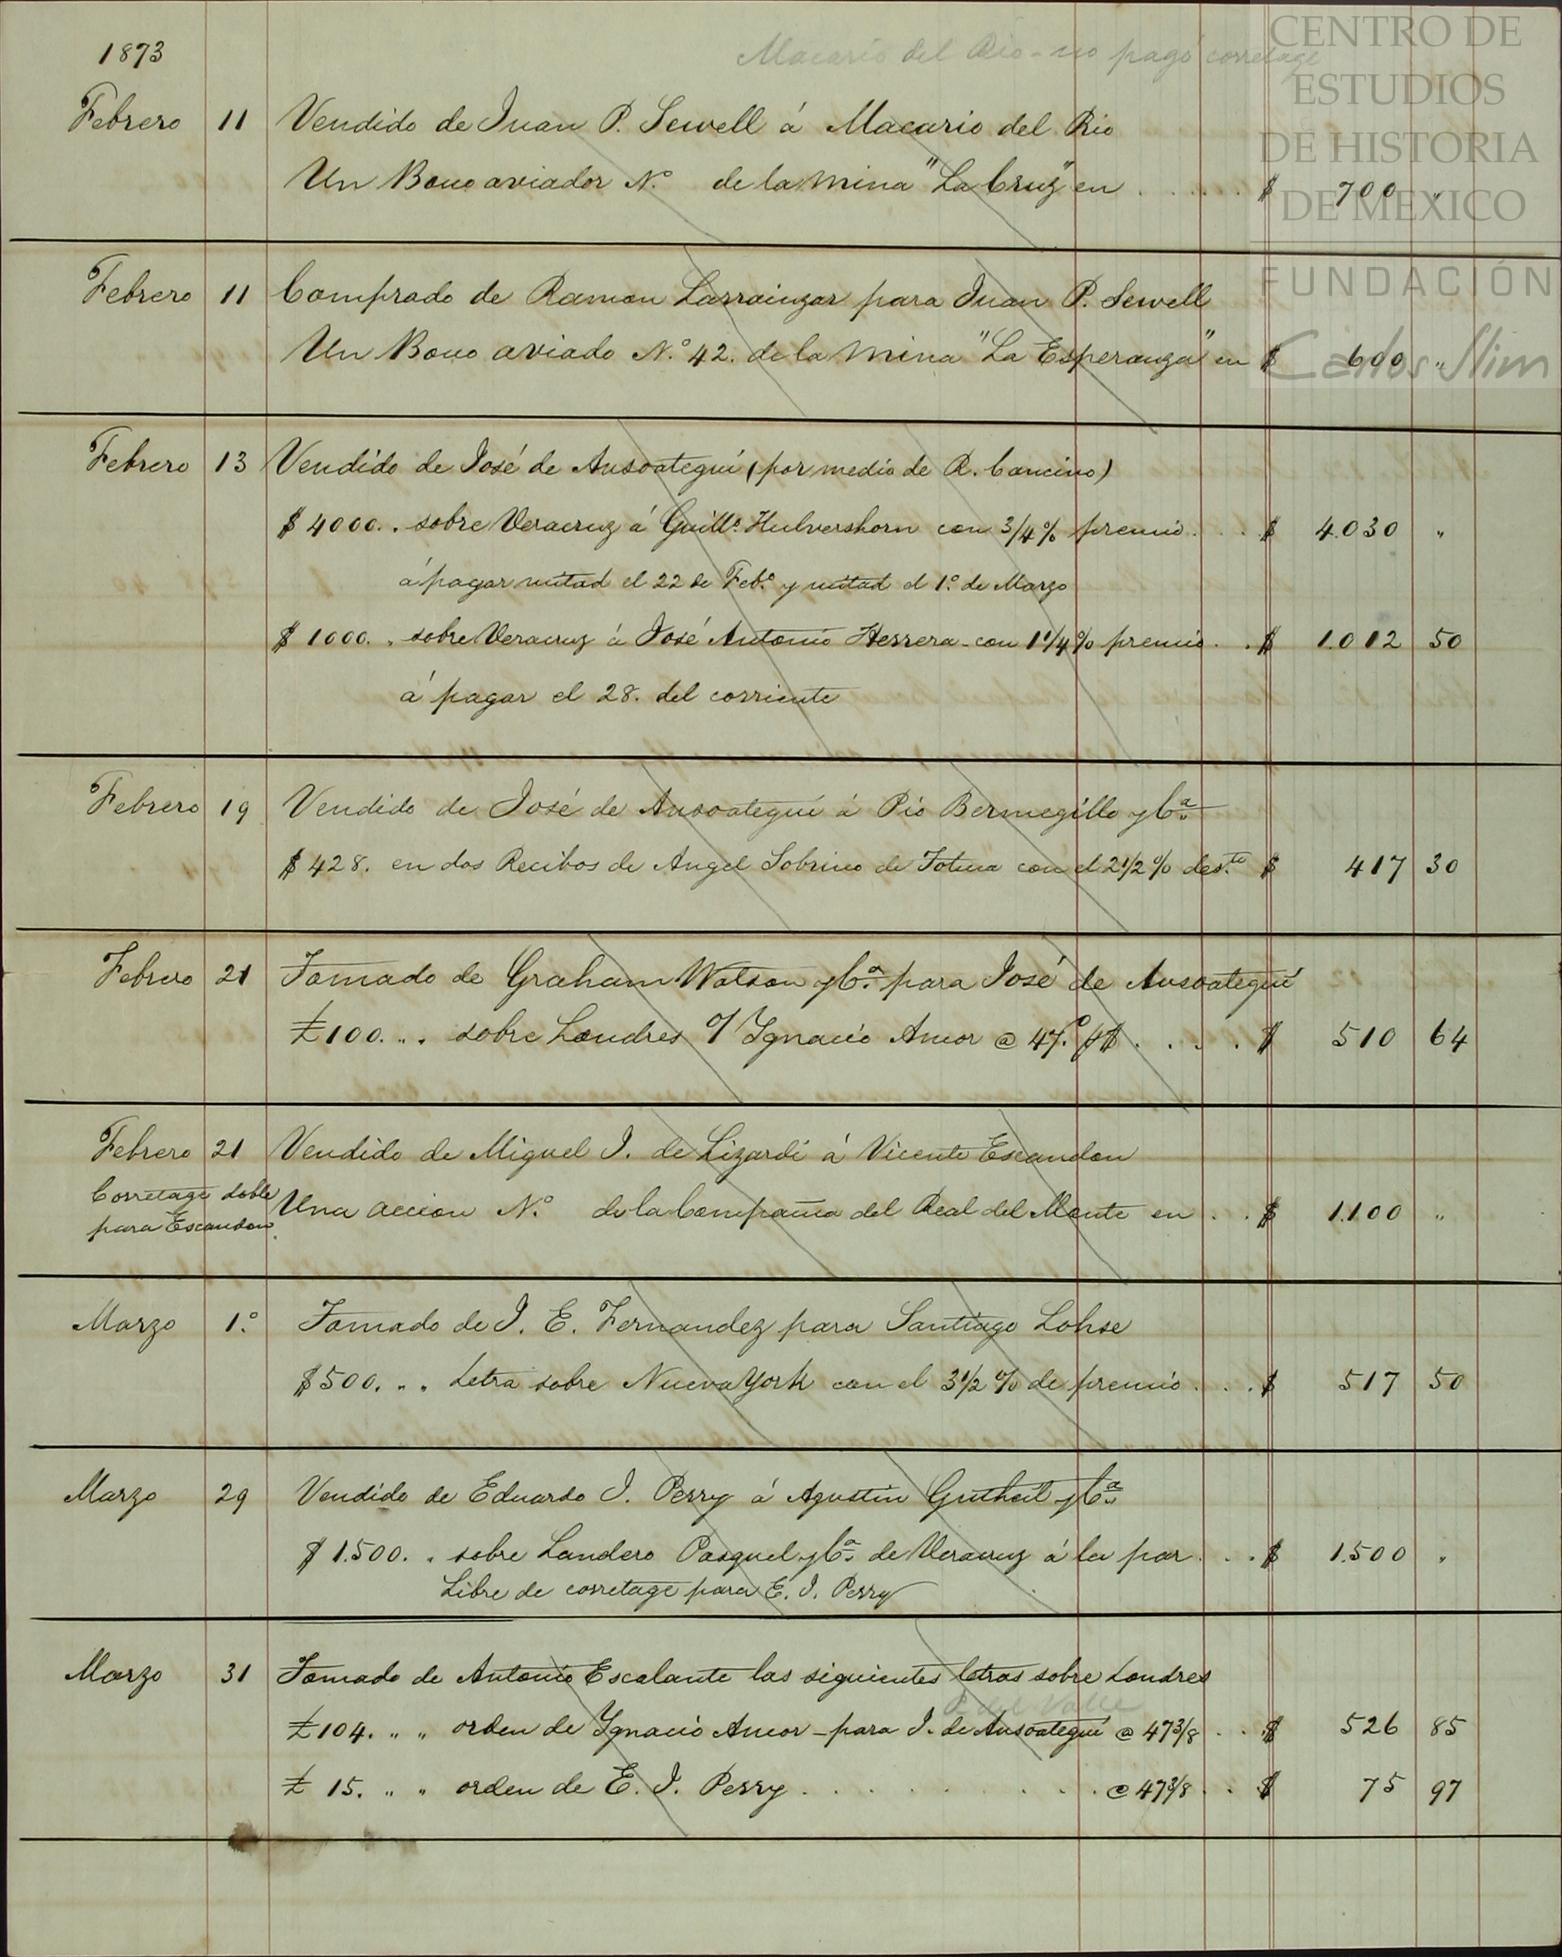 1873
Macario del Rio - no pagó corretage
Febrero 11 Vendido de Juan P. Sewell á Macario del Rio
Un Bono aviador N.º de la mina "La Cruz" en . . . . . $ 700 "
Febrero 11 Comprado de Ramon Larrainzar para Juan P. Sewell
Un Bono aviado N.º 42. de la mina "La Esperanza" en $ 600 "
Febrero 13 Vendido de José de Ansoategui (por medio de R. Cancino)
$ 4000. . sobre Veracruz á Guillº Hulvershorn con 3/4 % premio . . . $ 4.030 "
á pagar mitad el 22 de Feb.º y mitad el 1.º de Marzo
$ 1000. . sobre Veracruz á José Antonio Herrera - con 1 1/4 % premio . . . $ 1.012 50
á pagar el 28. del corriente
Febrero 19 Vendido de José de Ansoategui á Pio Bermegillo y Cª
$ 428. en dos Recibos de Angel Sobrino de con el 2 1/2 % des.to $ 417 30
Febrero 21 Tomado de Graham Watson y Cª para José de Ansoategui
£ 100. " . sobre Londres o/ Ygnacio Amor @ 47.d p$ . . . . $ 510 64
Febrero 21 Vendido de Miguel J. de Lizardi á Vicente Escandon
Corretage doble
para Escandon.
Una accion N.º de la Compañia del Real del Monte en . . $ 1.100 "
Marzo 1.º Tomado de J. E. Fernandez para Santiago Lohse
$ 500. " . Letra sobre Nueva York con el 3 1/2 % de premio . . . $ 517 50
Marzo 29 Vendido de Eduardo J. Perry á Agustin Gutheil y Cª
$ 1.500. . sobre Landero Pasquel y Cª de Veracruz á la par . . . $ 1.500 "
Libre de corretage para E. J. Perry
Marzo 31 Tomado de Antonio Escalante las siguientes letras sobre Londres
P. del Valle
£ 104. " " orden de Ygnacio Amor - para J. de Ansoategui @ 47 3/8 . . $ 526 85
£ 15. " " orden de E. J. Perry . . . . . . . . . @ 47 3/8 . . $ 75 97
CENTRO DE
ESTUDIOS
DE HISTORIA
DE MEXICO
FUNDACIÓN
Carlos Slim